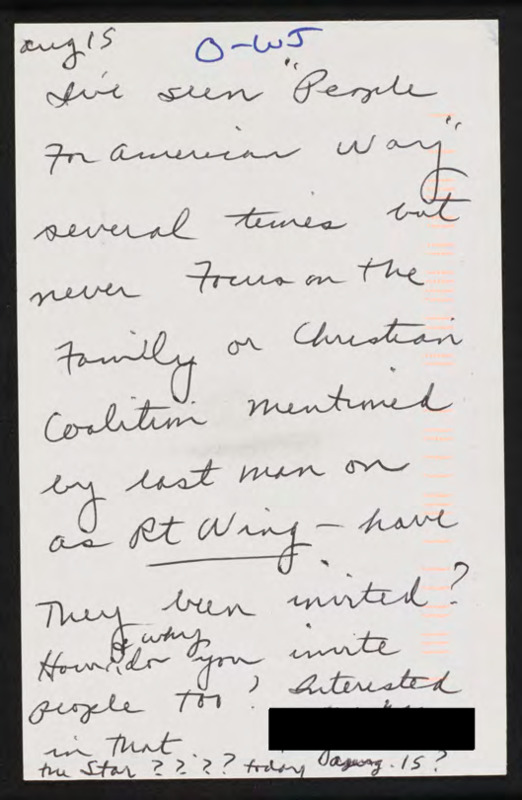 aug 15
O-WJ
I've seen "People
For American Way"
several times but
never Focus on the
Family or Christian
Coalition mentioned
by last man on
as Rt Wing - have
They been invited?
& why
How do you invite
people too? Interested
in that
the Star ???? today Aug. 15?